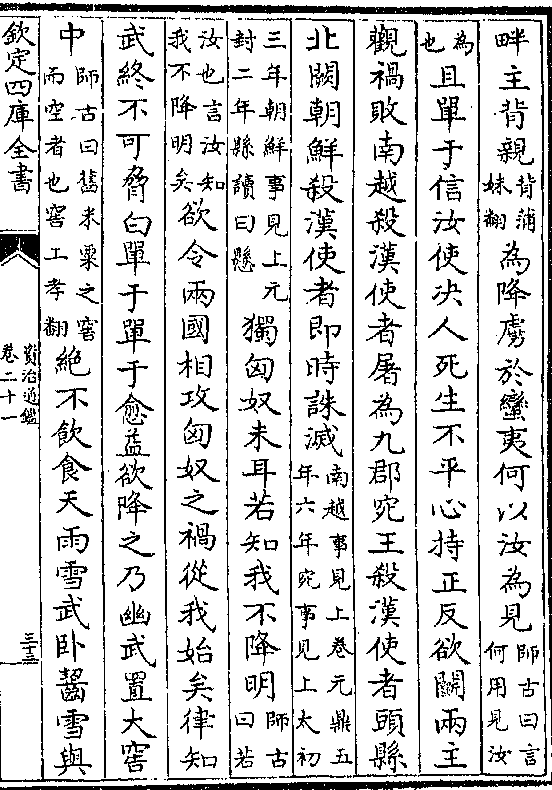 畔主背親背蒲妹翻為降虜於蠻夷何以汝為見師古曰言何用見汝
為也且單于信汝使决人死生不平心持正反欲鬭兩主
觀禍敗南越殺漢使者屠為九郡宛王殺漢使者頭縣
北闕朝鮮殺漢使者即時誅滅南越事見上卷元鼎五年六年宛事見上太初
三年朝鮮事見上元封二年縣讀曰懸獨匈奴未耳若知我不降明師古曰若
汝也言汝知我不降明矣欲令兩國相攻匈奴之禍從我始矣律知
武終不可脅白單于單于愈益欲降之乃幽武置大窖
中師古曰舊米粟之窖而空者也窖工孝翻絶不飲食天雨雪武卧齧雪與
欽定四庫全書
資治通鑑
卷二十一
三十三